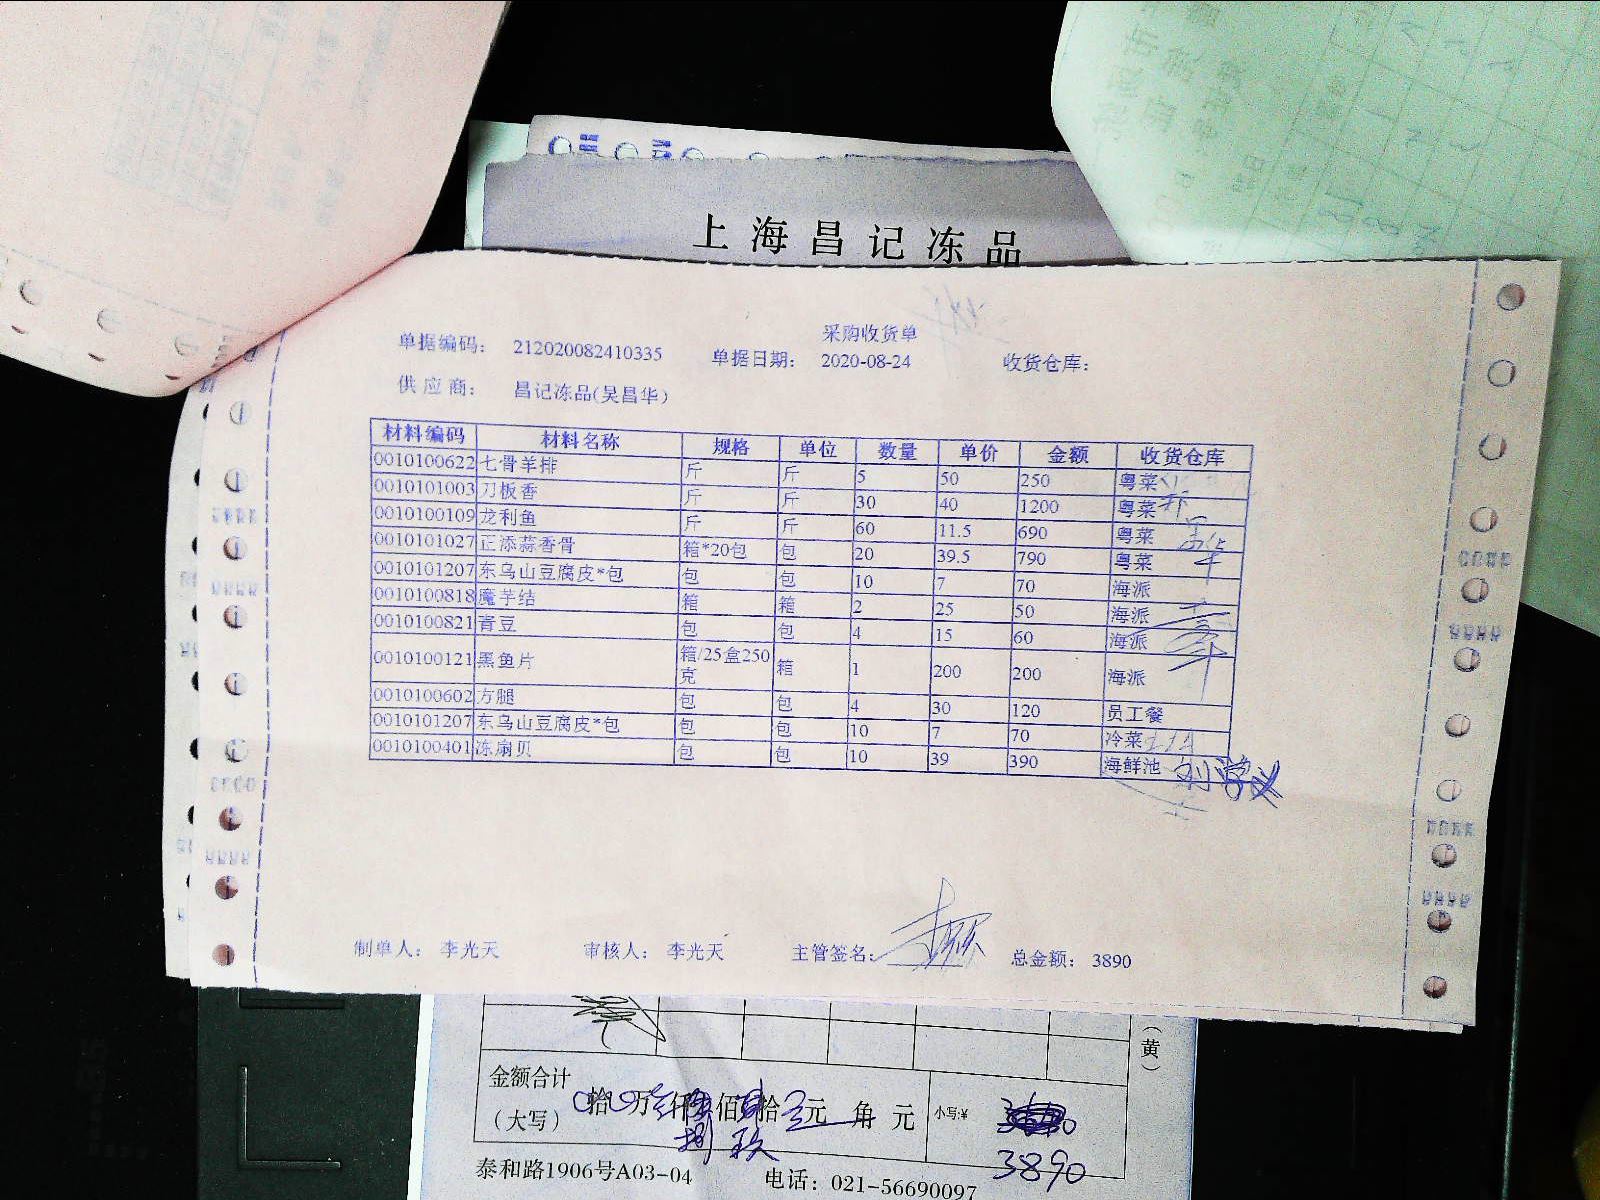 上海昌记冻品
采购收货单
单据编码: 212020082410335 单据日期: 2020-08-24 收货仓库:
供应商: 昌记冻品(吴昌华)
材料编码 材料名称 规格 单位 数量 单价 金额 收货仓库
0010100622 七骨羊排 斤 斤 5 50 250 粤菜
0010101003 刀板香 斤 斤 30 40 1200 粤菜
0010100109 龙利鱼 斤 斤 60 11.5 690 粤菜
0010101027 正添蒜香骨 箱*20包 包 20 39.5 790 粤菜
0010101207 东乌山豆腐皮*包 包 包 10 7 70 海派
0010100818 魔芋结 箱 箱 2 25 50 海派
0010100821 青豆 包 包 4 15 60 海派
0010100121 黑鱼片 箱/25盒250克 箱 1 200 200 海派
0010100602 方腿 包 包 4 30 120 员工餐
0010101207 东乌山豆腐皮*包 包 包 10 7 70 冷菜
0010100401 冻扇贝 包 包 10 39 390 海鲜池
制单人: 李光天 审核人: 李光天 主管签名: 总金额: 3890
(黄)
金额合计
(大写) 拾 万 仟 佰 拾 元 角 元 小写:¥
捌 玖 3890
泰和路1906号A03-04 电话: 021-56690097